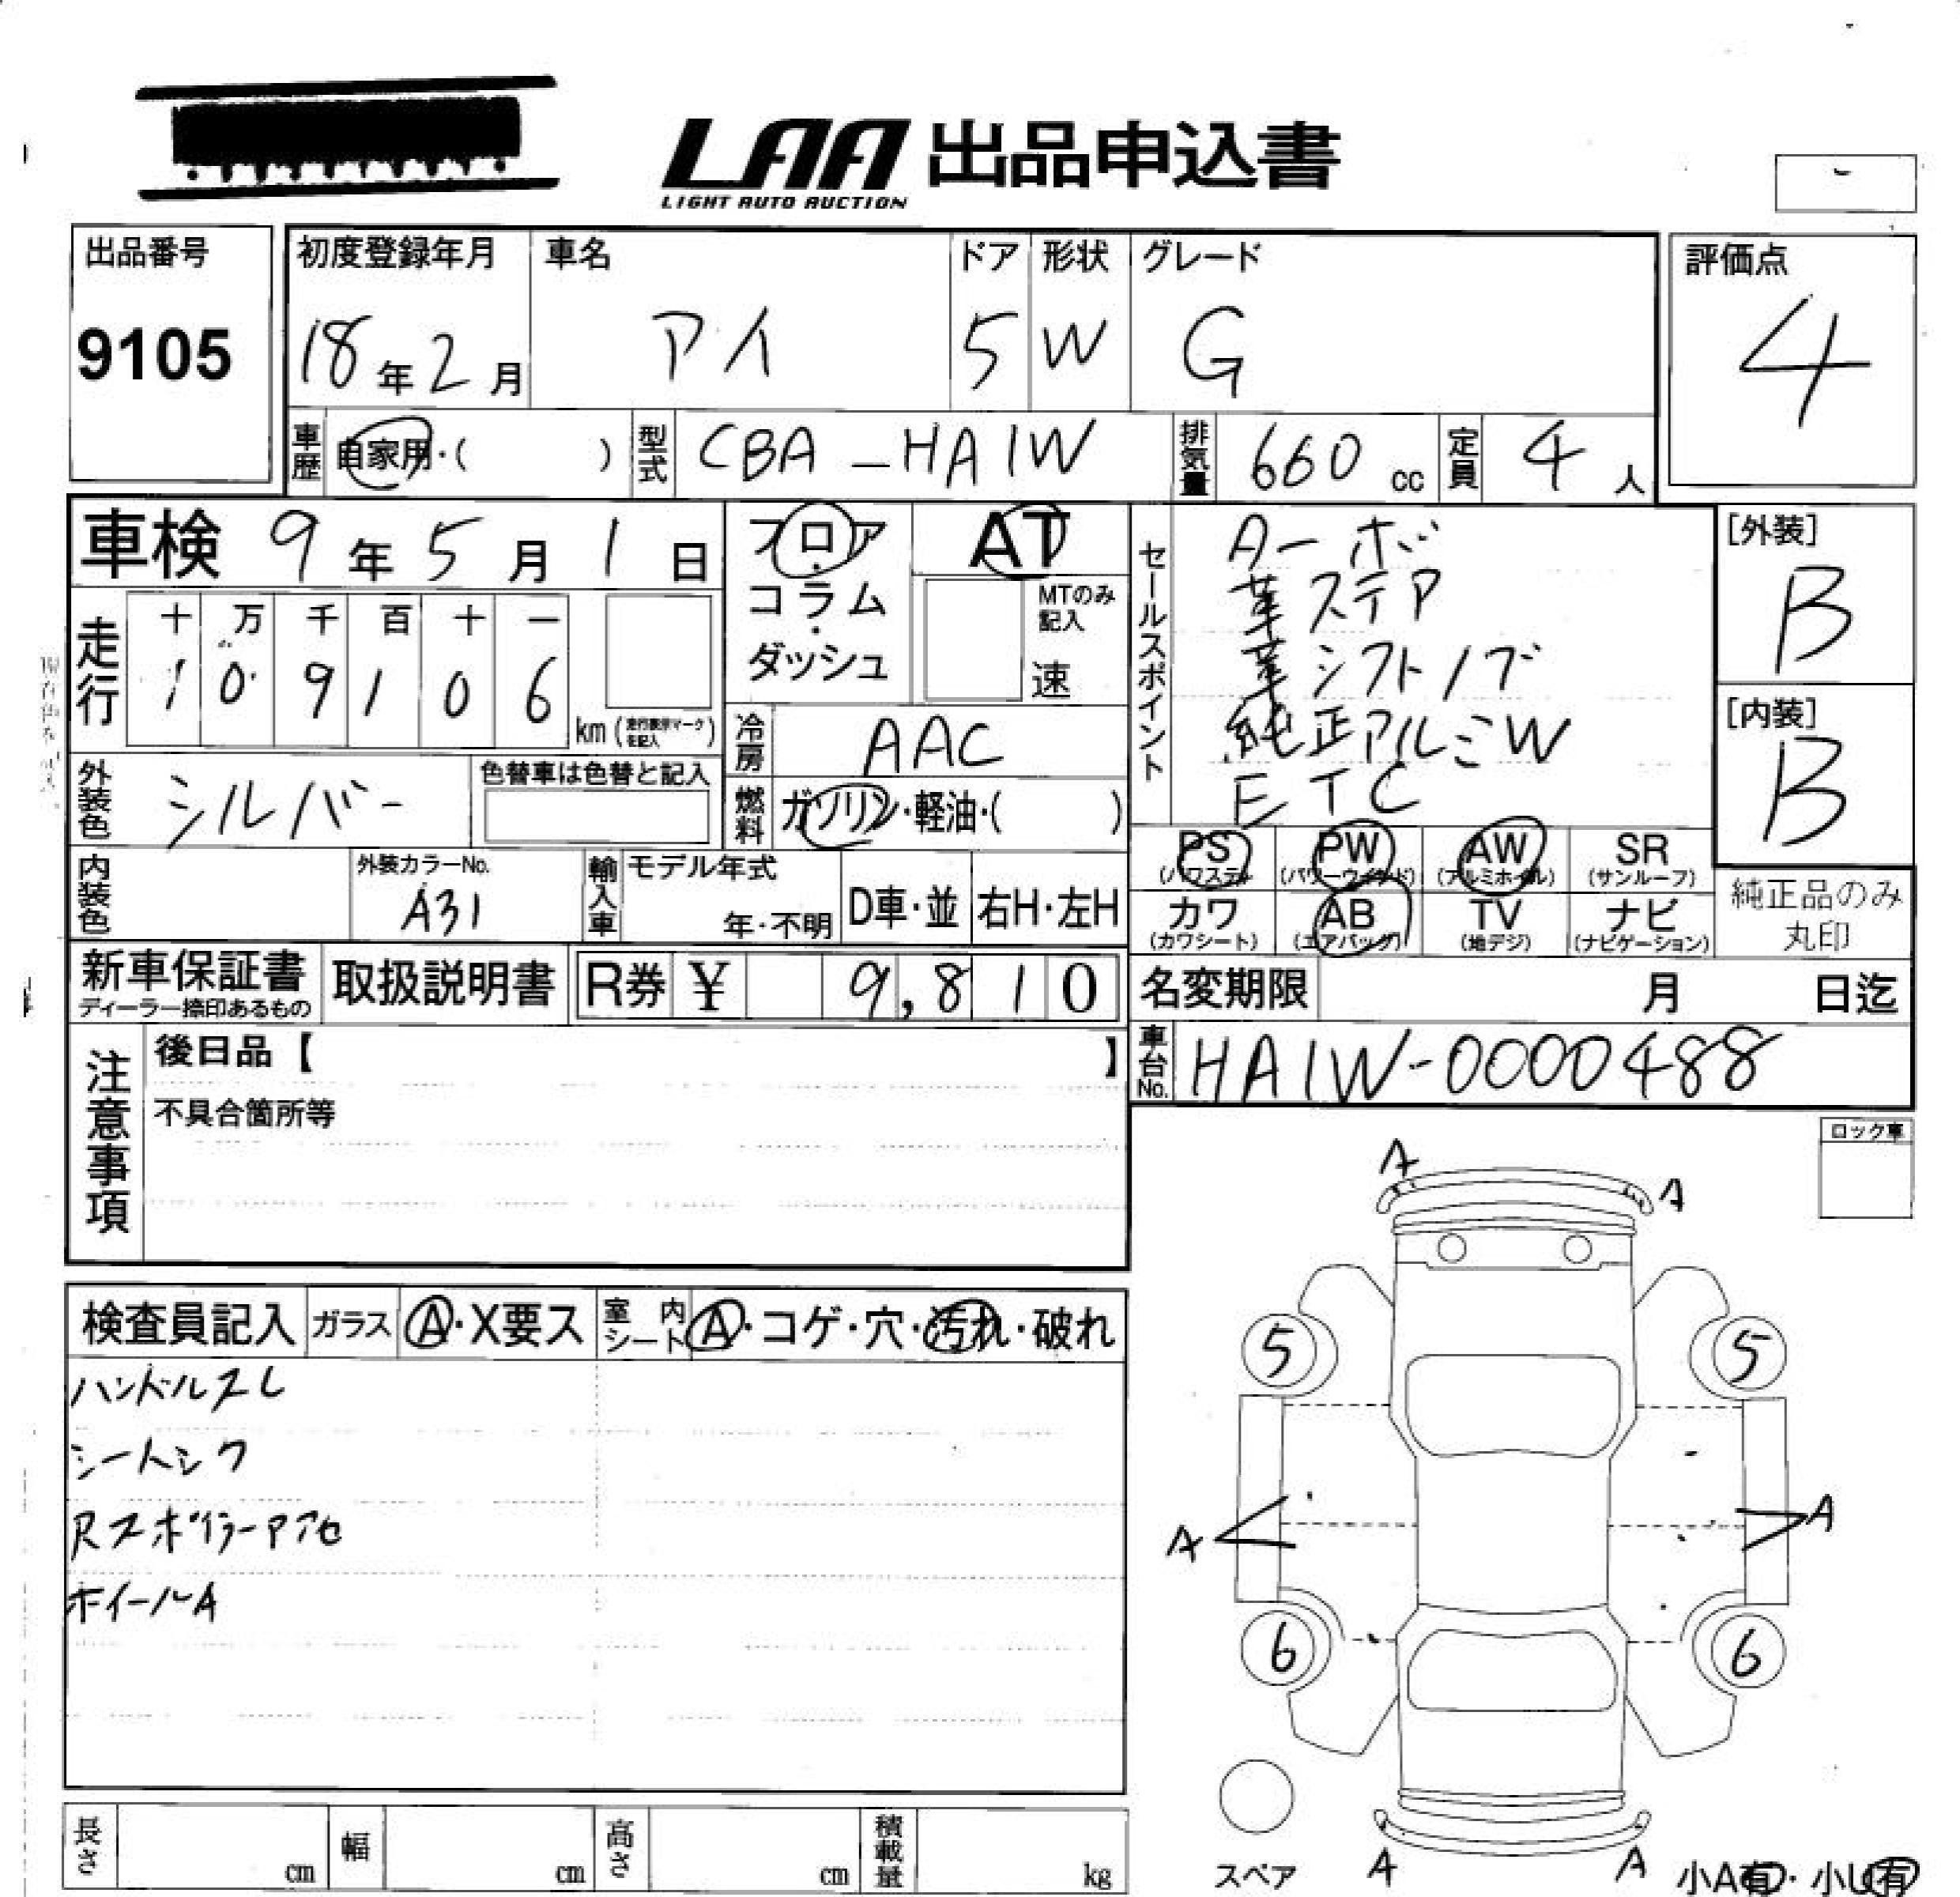 LAA 出品申込書
LIGHT AUTO AUCTION
出品番号
9105
初度登録年月
18年2月
車名
アイ
ドア
5
形状
W
グレード
G
評価点
4
車歴 自家用・( )
型式 CBA-HA1W
排気量 660 cc
定員 4人
車検 9年5月1日
フロア・コラム・ダッシュ
AT
MTのみ記入
速
走行
十 万 千 百 十 一
1 0 9 1 0 6
km (走行表示マークを記入)
冷房 AAC
外装色 シルバー
色替車は色替と記入
燃料 ガソリン・軽油・( )
内装色
外装カラーNo.
A31
輸入車
モデル年式
年・不明
D車・並
右H・左H
セールスポイント
ターボ
革ステア
革シフトノブ
純正アルミW
ETC
[外装]
B
[内装]
B
PS (パワステ)
PW (パワーウィンド)
AW (アルミホイル)
SR (サンルーフ)
カワ (カワシート)
AB (エアバッグ)
TV (地デジ)
ナビ (ナビゲーション)
純正品のみ
丸印
新車保証書
ディーラー捺印あるもの
取扱説明書
R券 ¥ 9,810
名変期限 月 日迄
車台No. HA1W-0000488
注意事項
後日品【 】
不具合箇所等
ロック車
検査員記入
ガラス A・X要ス
室内シート A・コゲ・穴・汚れ・破れ
ハンドルスレ
シートシワ
Rスポイラーアセ
ホイールA
A
A
5
5
A
A
6
6
スペア
A
A
小A有・小U有
長さ cm
幅 cm
高さ cm
積載量 kg